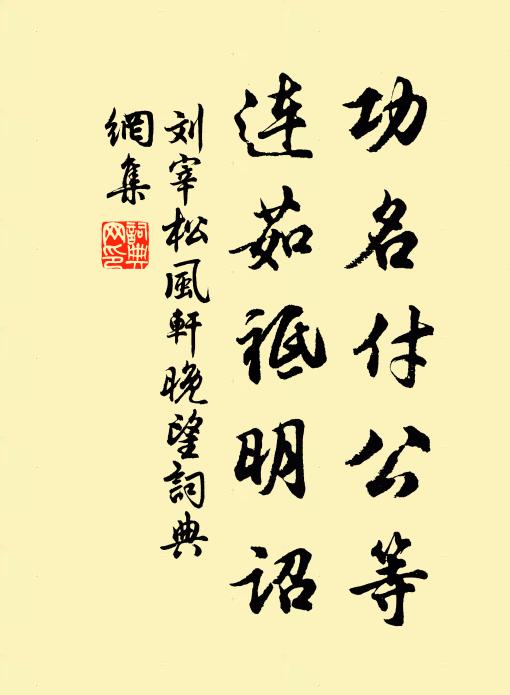 功名付公等
连茹祗明诏
刘宰松风轩晚望詞典
網集
詞典
网印